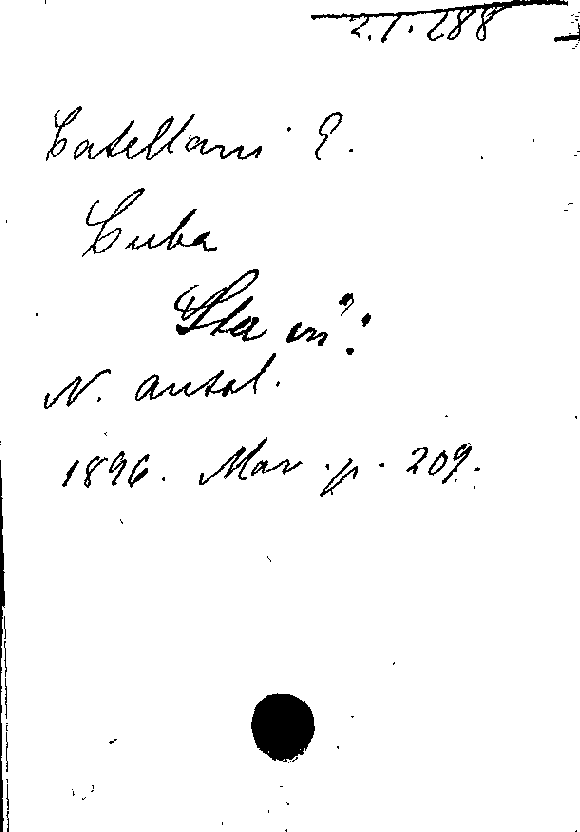 2.1.288
Catellani E.
Cuba
Sta in:
N. antol.
1896. Mar. p. 209.